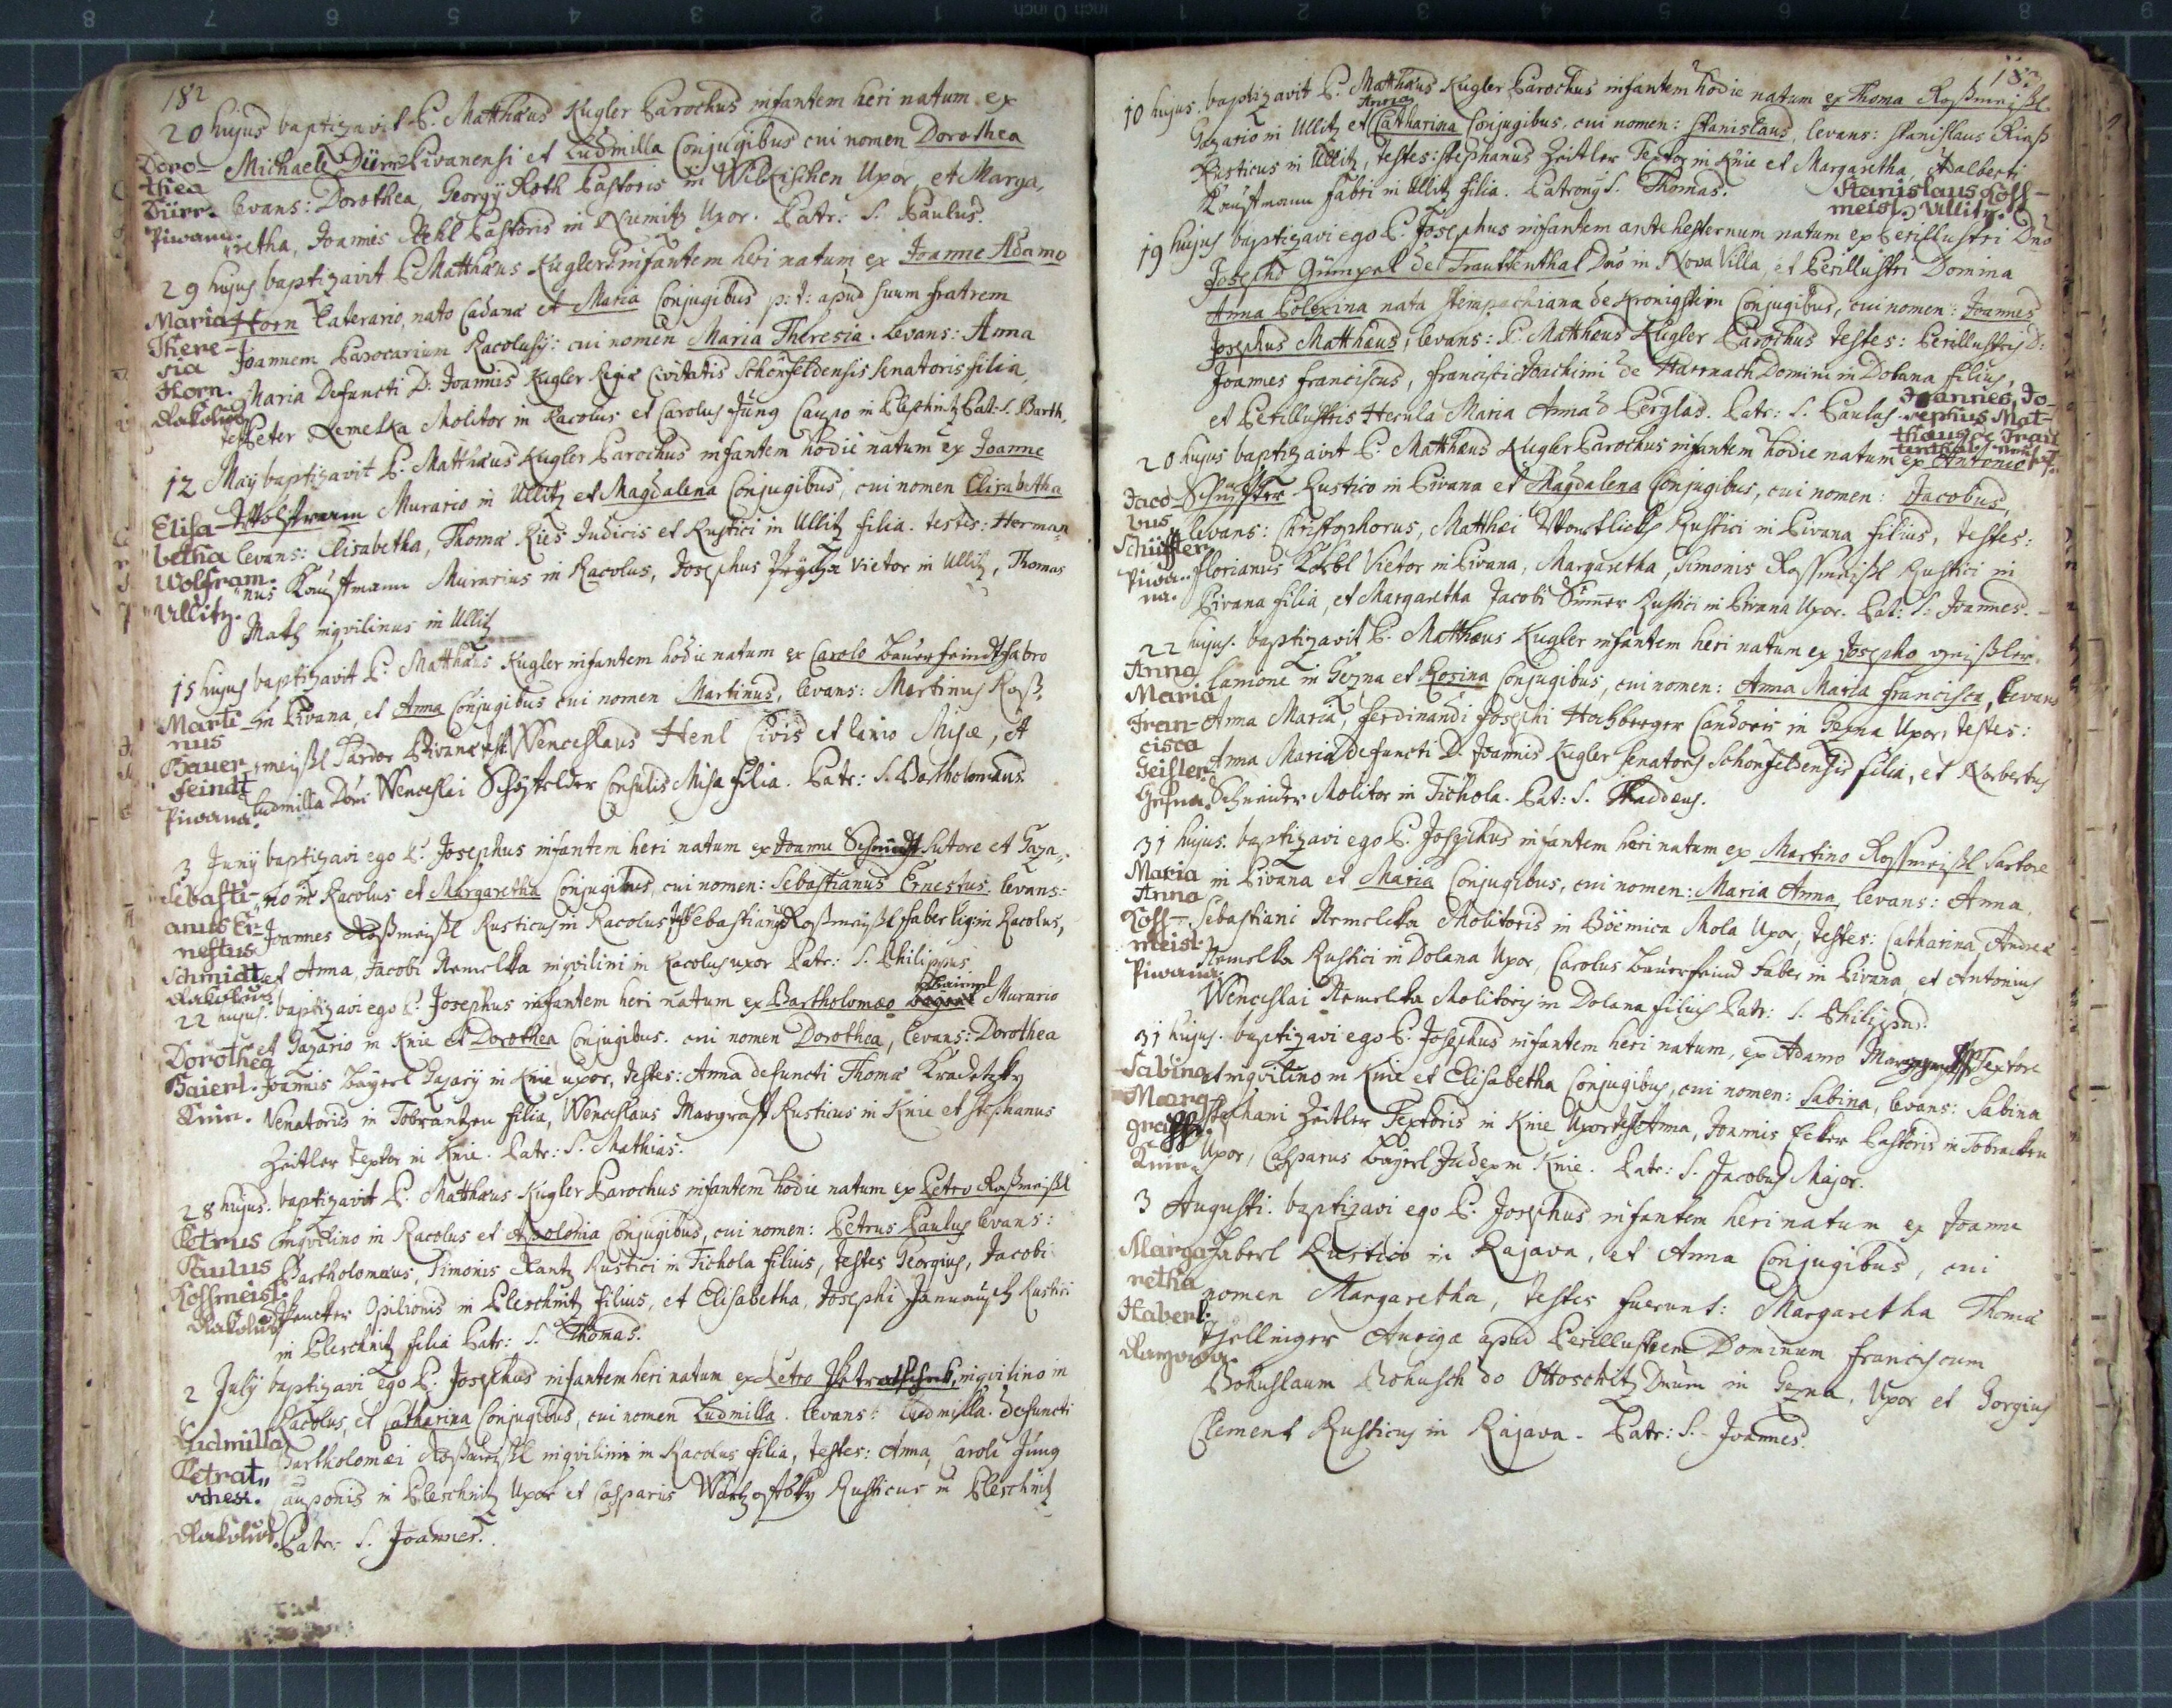 182
20 hujus baptizavit P. Matthæus Kugler Parochus infantem heri natum ex
Michaele Dürr Pivanensi et Ludmilla Conjugibus cui nomen Dorothea
levans: Dorothea, Georgÿ Roth Pastoris in Wilkischen Uxor et Marga„
retha, Joannis Pastoris in Numitz Uxor. Patr: S. Paulus.
Doro-
thea
Dürr.
Piwana.
29 hujus baptizavit P. Matthæus Kugler infantem heri natum ex Joanne Adamo
Horn Laterario, nato Cadanæ et Maria Conjugibus p: t: apud suum fratrem
Joannem Racolusÿ: cui nomen Maria Theresia. levans: Anna
Maria Defuncti D: Joannis Kugler Regiæ Civitatis Schönfeldensis Senatoris filia,
test: Peter Nemelka Molitor in Racolus et Carolus Jüng Caupo in Pleschnitz Pat: S. Barth.
Maria
There-
sia
Horn.
Rakolus
12 Maÿ baptizavit P. Matthæus Kugler Parochus infantem hodie natum ex Joanne
Wolfram Murario in Ullitz et Magdalena Conjugibus, cui nomen Elisabetha
levans: Elisabetha, Thomæ Ries Judicis et Rustici in Ullitz filia. testes: Herman„
nus Kaustmann Murarius in Racolus, Josephus Vietor in Ullitz, Thomas
Matz inqvilinus in Ullitz
Elisa-
betha
Wolfram.
Ullitz.
15 hujus baptizavit P. Matthæus Kugler infantem hodie natum ex Carolo Bauerfeindt fabro
in Pivana, et Anna Conjugibus cui nomen Martinus, levans: Martinus Roß„
meißl Sardor Pivanæ, test: Wenceslaus Henl Civis et lanio Misæ, et
Ludmilla Dñi Wenceslai Consulis Misæ filia. Patr: S. Bartholomæus.
Marti-
nus
Bauer
feindt
Piwana.
3 Junÿ baptizavi ego P. Josephus infantem heri natum ex Joanne Schmidt Sutore et Gaza„
rio in Racolus et Margaretha Conjugibus, cui nomen: Sebastianus Ernestus. levans:
Joannes Roßmeißl Rusticus in Racolus, test: Sebastianus Roßmeißl faber lig: in Racolus,
et Anna, Jacobi Nemelka inqvilini in Racolus uxor Patr: S. Philippus
Sebasti-
anus Er-
nestus
Schmidt
Rakolus
22 hujus. baptizavi ego P. Josephus infantem heri natum ex Bartholomæo Baierl Murario
et Gazario in Knie et Dorothea Conjugibus. cui nomen Dorothea, levans: Dorothea
Joannis Baÿerl Gazarÿ in Knie uxor, testes: Anna defuncti Thomæ Kradetzky
Venatoris in Tobrantzen filia, Wenceslaus Margraff Rusticus in Knie et Stephanus
Zeitler textor in Knie. Patr: S. Mathias.
Dorothea
Baierl.
Knin.
28 hujus. baptizavit P. Matthæus Kugler Parochus infantem hodie natum ex Petro Roßmeißl
inqvilino in Racolus et Apolonia Conjugibus, cui nomen: Petrus Paulus levans:
Bartholomæus, Simonis Rantz Rustici in Tichola filius, testes Georgius, Jacobi
Opilionis in Pleschnitz filius, et Elisabetha, Josephi Janumisch Rustici
in Pleschnitz filia Patr: S. Thomas.
Petrus
Paulus
Rossmeisl.
Rakolus
2 Julÿ baptizavi ego P. Josephus infantem heri natum ex Petro inqvilino in
Racolus, et Catharina Conjugibus, cui nomen Ludmilla. levans: Ludmilla. defuncti
Bartholomæi Roßmeißl inqvilini in Racolus filia, testes: Anna, Caroli Jüng
Cauponis in Pleschnitz Uxor et Casparus Rusticus in Pleschnitz
Patr: S. Joannes.
Ludmilla
Petrat„
Rakolus.
183
10 hujus. baptizavit P. Matthæus Kugler Parochus infantem hodie natum ex Thoma Roßmeißl
Gazario in Ullitz et Anna Catharina Conjugibus, cui nomen: Stanislaus, levans: Stanislaus Rieß
Rusticus in Ullitz, testes: Stephanus Zeitler Textor in Knie et Margaretha, Adalberti
Kaustmann fabri in Ullitz filia. Patronÿ S. Thomas.
Stanislaus Ross-
meisl. Ullitz.
19 hujus baptizavi ego P. Josephus infantem antehesternum natum ex Perillustri Dño
Josepho Gümpel de Trauttenthal Dño in Nova Villa, et Perillustri Domina
Anna Polexina nata Stempachiana de Kronigstein Conjugibus, cui nomen: Joannes
Josephus Matthæus, levans: P. Matthæus Kugler Parochus testes: Perillustris D:
Joannes franciscus, francisci Joachimi de Harrnach Domini in Dolana filius,
et Perillustris Herula Maria Anna d Perglas. Patr: S. Paulus.
Joannes, Jo-
sephus Mat-
thæus de Traut
tenthal
20 hujus baptizavit P. Matthæus Kugler Parochus infantem hodie natum ex Antonio
Schüffler Rustico in Pivana et Magdalena Conjugibus, cui nomen: Jacobus,
levans: Christophorus, Matthæi Rustici in Pivana filius, testes:
florianus Vietor in Pivana, Margaretha, Simonis Roßmeißl Rustici in
Pivana filia, et Margaretha Jacobi Rustici in Pivana Uxor. Pat: S: Joannes.
Jaco-
bus
Schüffler
Piwa-
na.
22 hujus. baptizavit P. Matthæus Kugler infantem heri natum ex Josepho geißler
lanione in Gezna et Rosina Conjugibus, cui nomen: Anna Maria francisca, levans
Anna Maria, ferdinandi Josephi Hochberger in Gezna Uxor, testes:
Anna Maria defuncti D. Joannis Kugler Senatoris Schönfeldensis filia, et Norbertus
Schneider Molitor in Tichola. Pat: S. Thaddeus.
Anna
Maria
Fran-
cisca
Geisler.
Gesna.
31 hujus. baptizavi ego P. Josephus infantem heri natum ex Martino Roßmeißl Sartore
in Pivana et Maria Conjugibus, cui nomen: Maria Anna, levans: Anna,
Sebastiani Nemelka Molitoris in Böemica Mola Uxor, testes: Catharina, Andreæ
Nemelka Rustici in Dolana Uxor, Carolus Bauerfeind faber in Pivana, et Antonius
Wenceslai Nemelka Molitoris in Dolana filius Patr: S. Philippus.
Maria
Anna
Ross-
meisl.
Piwana.
31 hujus. baptizavi ego P. Josephus infantem heri natum, ex Adamo Textore
et inqvilino in Knie et Elisabetha Conjugibus, cui nomen: Sabina, levans: Sabina
Stephani Zeitler Textoris in Knie Uxor, test: Anna, Joannis Ecker Pastoris in Tobracken
Uxor, Casparus Baÿerl Judex in Knie. Patr: S. Jacobus Major.
Sabina
Marg-
graff.
Knin.
3 Augusti. baptizavi ego P. Josephus infantem heri natum ex Joanne
Haberl Rustico in Rajava, et Anna Conjugibus, cui
nomen Margaretha, testes fuerunt: Margaretha Thomæ
Aurigæ apud Perillustrem Dominum franciscum
Bohuslaum Bohusch do Ottoschitz Dnum in Gezna, Uxor et Gorgius
Clement Rusticus in Rajava. Patr: S. Joannes.
Marga
retha
Haberl.